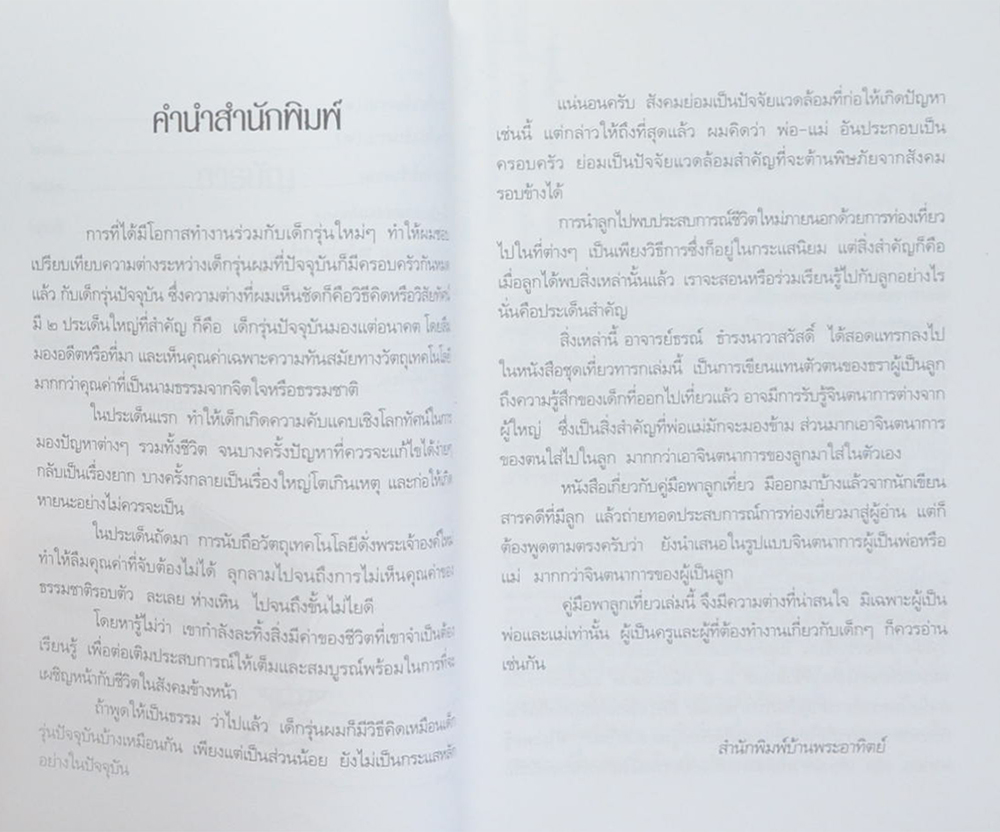 คำนำสำนักพิมพ์
การที่ได้มีโอกาสทำงานร่วมกับเด็กรุ่นใหม่ๆ ทำให้ผม
เปรียบเทียบความต่างระหว่างเด็กรุ่นผมที่ปัจจุบันก็มีครอบครัวกันหมด
แล้ว กับเด็กรุ่นปัจจุบัน ซึ่งความต่างที่ผมเห็นชัดก็คือวิธีคิดหรือวิสัยทัศน์
มี ๒ ประเด็นใหญ่ที่สำคัญ ก็คือ เด็กรุ่นปัจจุบันมองแต่อนาคต โดยลืม
มองอดีตหรือที่มา และเห็นคุณค่าเฉพาะความทันสมัยทางวัตถุเทคโนโลยี
มากกว่าคุณค่าที่เป็นนามธรรมจากจิตใจหรือธรรมชาติ
ในประเด็นแรก ทำให้เด็กเกิดความคับแคบเชิงโลกทัศน์ในการ
มองปัญหาต่างๆ รวมทั้งชีวิต จนบางครั้งปัญหาที่ควรจะแก้ไขได้ง่ายๆ
กลับเป็นเรื่องยาก บางครั้งกลายเป็นเรื่องใหญ่โตเกินเหตุ และก่อให้เกิด
หายนะอย่างไม่ควรจะเป็น
ในประเด็นถัดมา การนับถือวัตถุเทคโนโลยีดั่งพระเจ้าองค์ใหม่
ทำให้ลืมคุณค่าที่จับต้องไม่ได้ ลุกลามไปจนถึงการไม่เห็นคุณค่าของ
ธรรมชาติรอบตัว ละเลย ห่างเหิน ไปจนถึงขั้นไม่ไยดี
โดยหารู้ไม่ว่า เขากำลังละทิ้งสิ่งมีค่าของชีวิตที่เขาจำเป็นต้อง
เรียนรู้ เพื่อต่อเติมประสบการณ์ให้เต็มและสมบูรณ์พร้อมในการที่จะ
เผชิญหน้ากับชีวิตในสังคมข้างหน้า
ถ้าพูดให้เป็นธรรม ว่าไปแล้ว เด็กรุ่นผมก็มีวิธีคิดเหมือนเด็ก
รุ่นปัจจุบันบ้างเหมือนกัน เพียงแต่เป็นส่วนน้อย ยังไม่เป็นกระแสหลัก
อย่างในปัจจุบัน
แน่นอนครับ สังคมย่อมเป็นปัจจัยแวดล้อมที่ก่อให้เกิดปัญหา
เช่นนี้ แต่กล่าวให้ถึงที่สุดแล้ว ผมคิดว่า พ่อ-แม่ อันประกอบเป็น
ครอบครัว ย่อมเป็นปัจจัยแวดล้อมสำคัญที่จะต้านพิษภัยจากสังคม
รอบข้างได้
การนำลูกไปพบประสบการณ์ชีวิตใหม่ภายนอกด้วยการท่องเที่ยว
ไปในที่ต่างๆ เป็นเพียงวิธีการซึ่งก็อยู่ในกระแสนิยม แต่สิ่งสำคัญก็คือ
เมื่อลูกได้พบสิ่งเหล่านั้นแล้ว เราจะสอนหรือร่วมเรียนรู้ไปกับลูกอย่างไร
นั่นคือประเด็นสำคัญ
สิ่งเหล่านี้ อาจารย์ธรณ์ ธำรงนาวาสวัสดิ์ ได้สอดแทรกลงไป
ในหนังสือชุดเที่ยวทารกเล่มนี้ เป็นการเขียนแทนตัวตนของธราผู้เป็นลูก
ถึงความรู้สึกของเด็กที่ออกไปเที่ยวแล้ว อาจมีการรับรู้จินตนาการต่างจาก
ผู้ใหญ่ ซึ่งเป็นสิ่งสำคัญที่พ่อแม่มักจะมองข้าม ส่วนมากเอาจินตนาการ
ของตนใส่ไปในลูก มากกว่าเอาจินตนาการของลูกมาใส่ในตัวเอง
หนังสือเกี่ยวกับคู่มือพาลูกเที่ยว มีออกมาบ้างแล้วจากนักเขียน
สารคดีที่มีลูก แล้วถ่ายทอดประสบการณ์การท่องเที่ยวมาสู่ผู้อ่าน แต่ก็
ต้องพูดตามตรงครับว่า ยังนำเสนอในรูปแบบจินตนาการผู้เป็นพ่อหรือ
แม่ มากกว่าจินตนาการของผู้เป็นลูก
คู่มือพาลูกเที่ยวเล่มนี้ จึงมีความต่างที่น่าสนใจ มิเฉพาะผู้เป็น
พ่อและแม่เท่านั้น ผู้เป็นครูและผู้ที่ต้องทำงานเกี่ยวกับเด็กๆ ก็ควรอ่าน
เช่นกัน
สำนักพิมพ์บ้านพระอาทิตย์